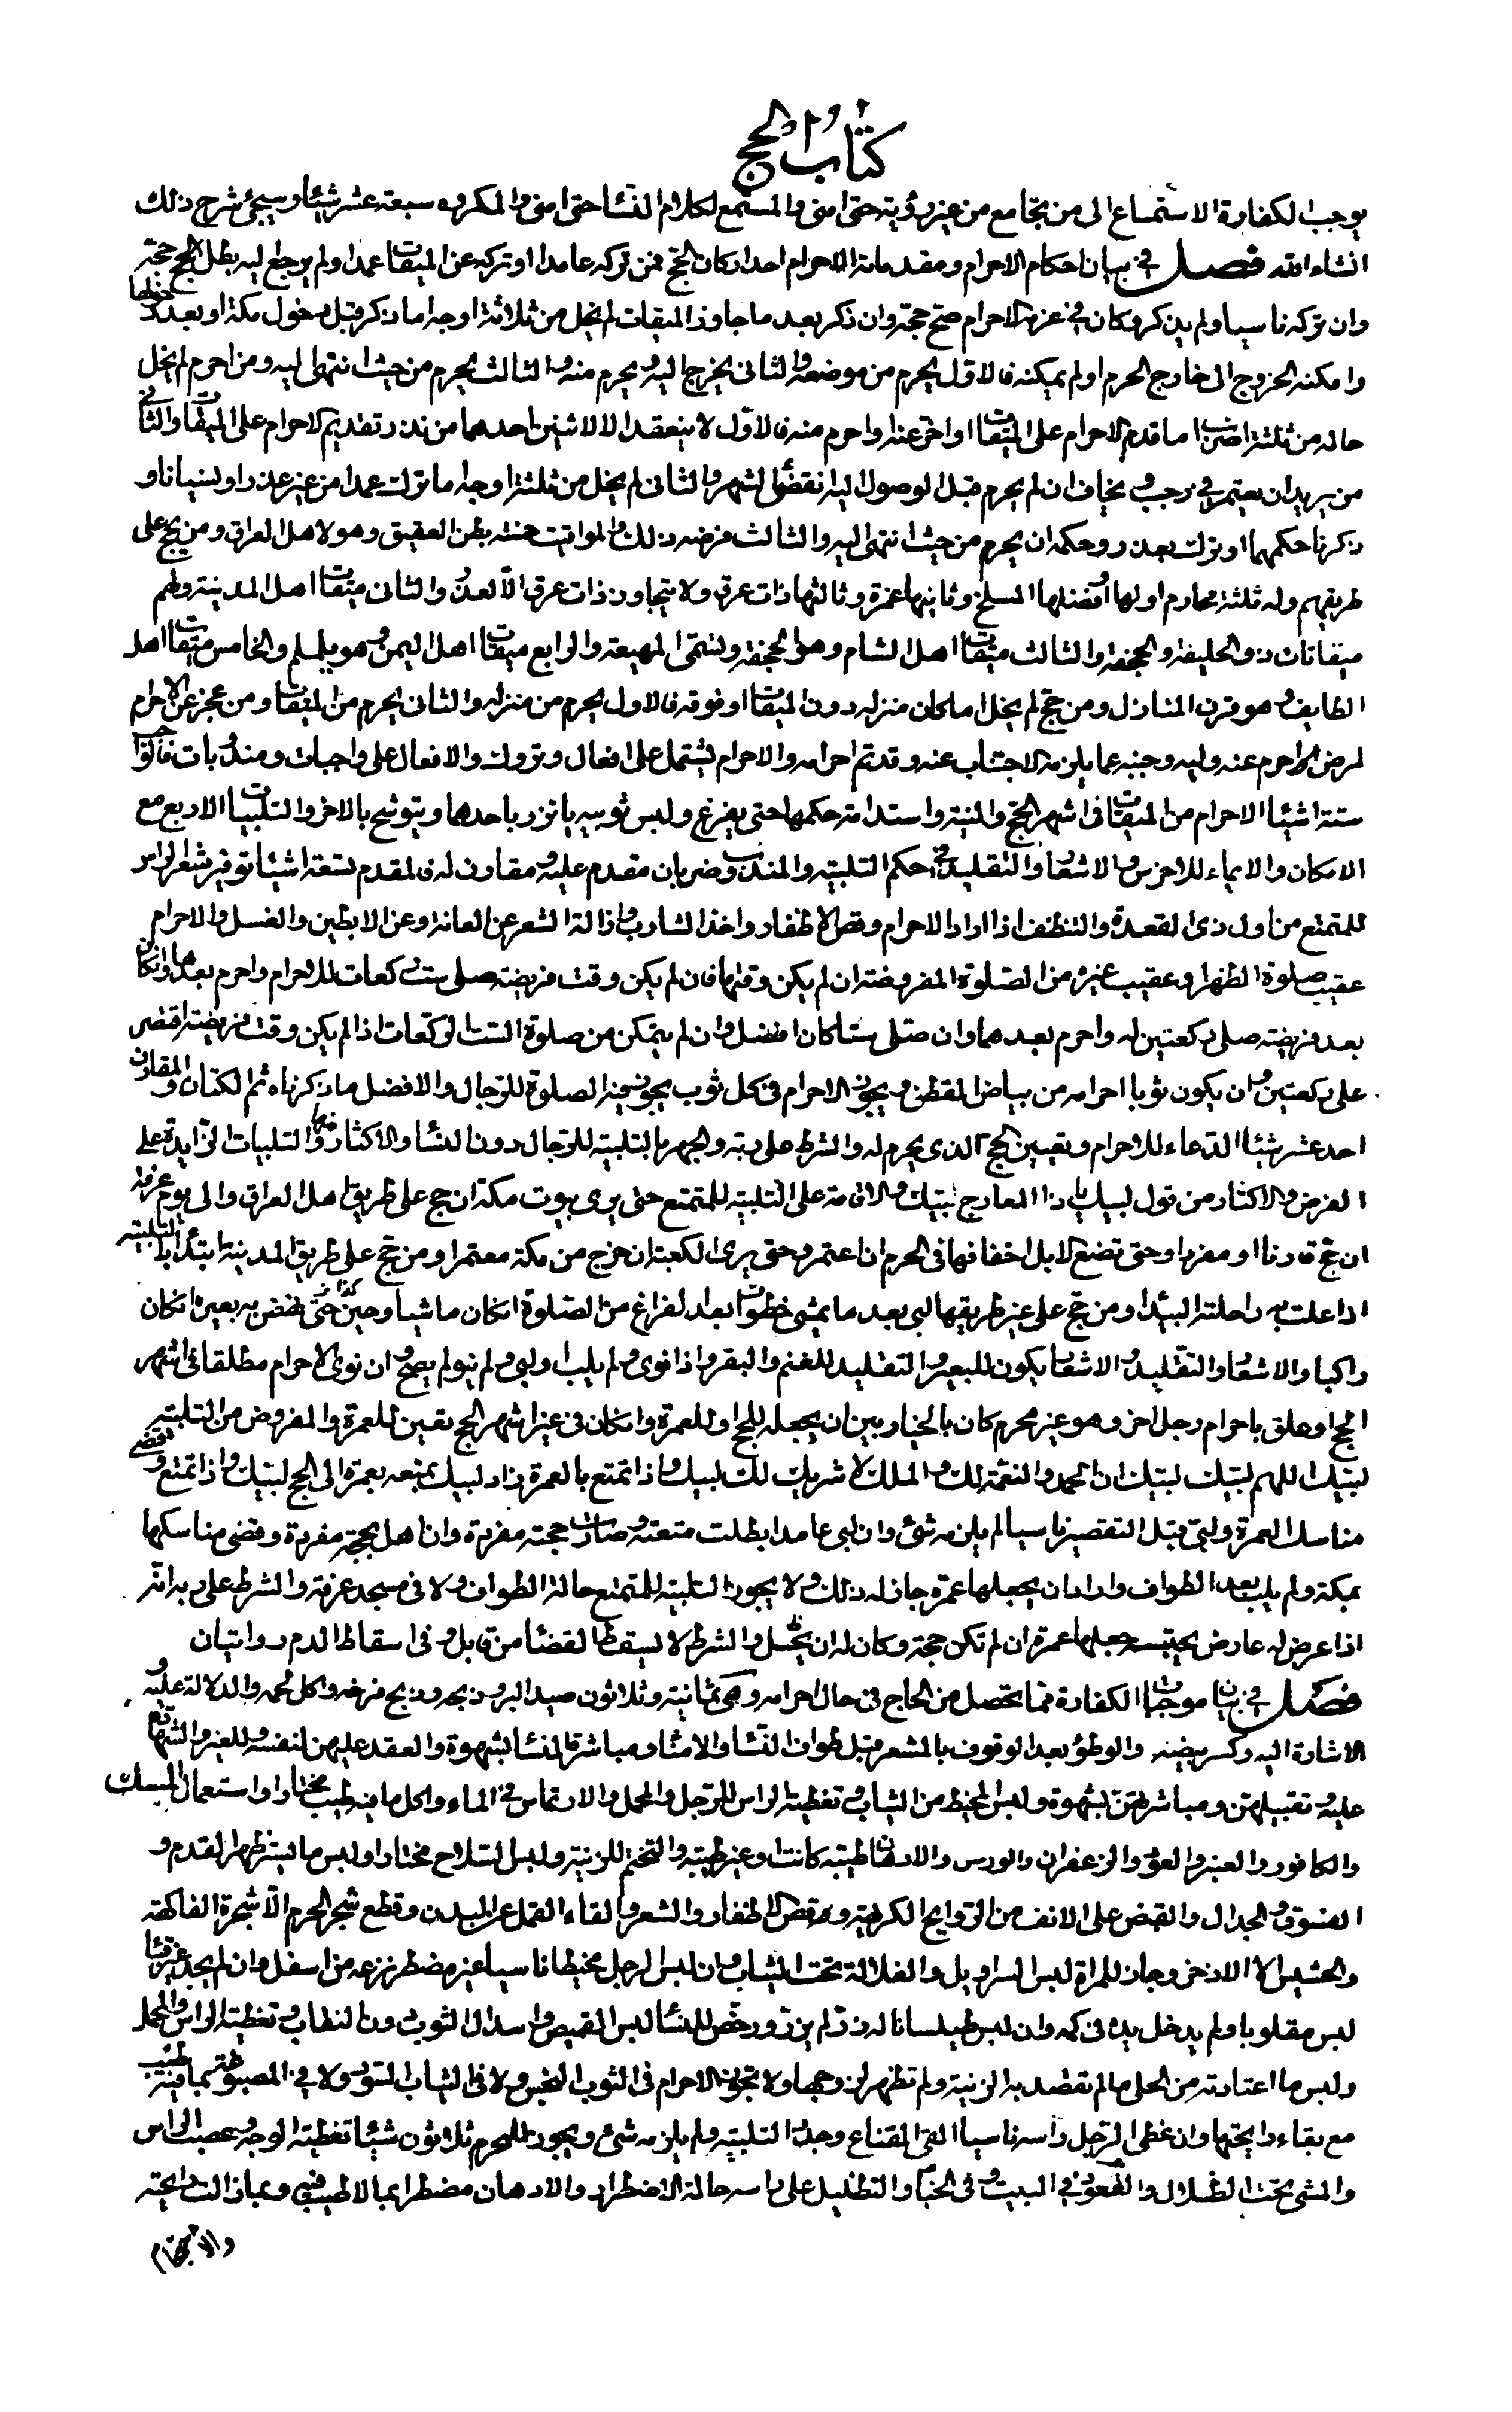 كتاب الحج
يوجب الكفارة الاستماع الى من يجامع من غير رؤية حتى امنى والمستمع لكلام النساء حتى امنى والمكروه سبعة عشر شيئا وسيجئ شرح ذلك
انشاء الله فصل في بيان احكام الاحرام ومقدماته الاحرام احد اركان الحج فمن تركه عامدا او تركه عن الميقات عمدا ولم يرجع اليه بطل الحج حجته
وان تركه ناسيا ولم يذكر وكان في عزمه الاحرام صح حجه وان ذكر بعد ما جاوز الميقات لم يخل من ثلاثة اوجه اما ذكر قبل دخول مكة او بعد دخولها
وامكنه الخروج الى خارج الحرم او لم يمكنه فالاول يحرم من موضعه والثانى يخرج اليه ويحرم منه والثالث يحرم من حيث انتهى اليه ومن احرم لم يخل
حاله من ثلثة اضرب اما قدم الاحرام على الميقات او اخر عنه او احرم منه فالاول لا ينعقد الا لاثنين احدهما من نذر تقديم الاحرام على الميقات والثانى
من يريد ان يعتمر في رجب ويخاف ان لم يحرم قبل الوصول اليه انقضى الشهر والثانى لم يخل من ثلثة اوجه اما ترك عمدا من غير عذر او نسيانا و
ذكرنا حكمهما او ترك بعذر وحكمه ان يحرم من حيث انتهى اليه والثالث فرضه ذلك والمواقيت خمسة بطن العقيق وهو لاهل العراق ومن يحج على
طريقهم وله ثلثة محارم اولها وافضلها المسلخ وثانيها غمرة وثالثها ذات عرق ولا يتجاوز ذات عرق الا لعذر والثانى ميقات اهل المدينة ولهم
ميقاتان ذو الحليفة والجحفة والثالث ميقات اهل الشام وهو الجحفة وتسمى المهيعة والرابع ميقات اهل اليمن وهو يلملم والخامس ميقات اهل
الطايف وهو قرن المنازل ومن حج لم يخل اما كان منزله دون الميقات او فوقه فالاول يحرم من منزله والثانى يحرم من الميقات ومن عجز عن الاحرام
لمرض احرم عنه وليه وجنبه عما يلزمه الاجتناب عنه وقد تم احرامه والاحرام يشتمل على افعال وتروك والافعال على واجبات ومندوبات فالواجب
ستة اشياء الاحرام من الميقات فى اشهر الحج والنية واستدامة حكمها حتى يفرغ ولبس ثوبيه ياتزر باحدهما ويتوشح بالاخر والتلبيات الاربع مع
الامكان والايماء للاخرس والاشعار والتقليد في حكم التلبية والمندوب ضربان مقدم عليه ومقارن له فالمقدم تسعة اشياء توفير شعر الراس
للمتمتع من اول ذى القعدة والتنظف اذا اراد الاحرام وقص الاظفار واخذ الشارب وازالة الشعر عن العانة وعن الابطين والغسل والاحرام
عقيب صلوة الظهر او عقيب غيره من الصلوة المفروضة ان لم يكن وقتها فان لم يكن وقت فريضة صلى ست ركعات للاحرام واحرم بعدها وان كان
بعد فريضة صلى ركعتين له واحرم بعدهما وان صلى ستا كان افضل وان لم يتمكن من صلوة الست الركعات اذا لم يكن وقت فريضة اقتصر
على ركعتين وان يكون ثوبا احرامه من بياض القطن ويجوز الاحرام فى كل ثوب يجوز فيه الصلوة للرجال والافضل ما ذكرناه ثم الكتان والمقارن
احد عشر شيئا الدعاء للاحرام وتعيين الحج الذى يحرم له والشرط على ربه والجهر بالتلبية للرجال دون النساء والاكثار منها والتلبيات الزايدة على
الفرض والاكثار من قول لبيك يا ذا المعارج لبيك والاقامة على التلبية للمتمتع حتى يرى بيوت مكة ان حج على طريق اهل العراق والى يوم عرفة
ان حج قارنا او مفردا وحتى تضع الابل اخفافها فى الحرم ان اعتمر وحتى يرى الكعبة ان خرج من مكة معتمرا ومن حج على طريق المدينة ابتدأ بالتلبية
اذا علت به راحلته البيداء ومن حج على غير طريقها لبى بعد ما يمشى خطوات بعد الفراغ من الصلوة ان كان ماشيا وحين نهض به بعيره ان كان
راكبا والاشعار والتقليد والاشعار يكون للبعير والتقليد للغنم والبقر واذا نوى ولم يلب او لبى ولم ينو لم يصح وان نوى الاحرام مطلقا فى اشهر
الحج او علق باحرام رجل اخر وهو غير محرم كان بالخيار بين ان يجعله للحج او للعمرة وان كان فى غير اشهر الحج تعين للعمرة والمفروض من التلبية
لبيك اللهم لبيك لبيك ان الحمد والنعمة لك والملك لا شريك لك لبيك واذا تمتع بالعمرة زاد لبيك بمتعة بعمرة الى الحج لبيك واذا تمتع وقضى
مناسك العمرة ولبى قبل التقصير ناسيا لم يلزمه شئ وان لبى عامدا بطلت متعته وصارت حجته مفردة وان اهل بحجة مفردة وقضى مناسكها
بمكة ولم يلب بعد الطواف واراد ان يجعلها عمرة جاز له ذلك ولا يجوز التلبية للمتمتع حالة الطواف ولا فى مسجد عرفة والشرط على ربه انه
اذا عرض له عارض يحتبسه جعلها عمرة ان لم تكن حجة وكان له ان يحل والشرط لا يسقط القضاء من قابل وفى اسقاط الدم روايتان
فصل في بيان موجبات الكفارة مما يحصل من الحاج فى حال احرامه وهى ثمانية وثلاثون صيد البر وذبحه وذبح فرخه واكل لحمه والدلالة عليه و
الاشارة اليه وكسر بيضه والوطؤ بعد الوقوف بالمشعر وقبل طواف النساء والامناء ومباشرة النساء بشهوة والعقد عليهن لنفسه وللغير والشهادة
عليه وتقبيلهن ومباشرتهن بشهوة ولبس المخيط من الثياب وتغطية الراس للرجل والمحمل والارتماس في الماء واكل ما فيه طيب مختارا واستعمال المسك
والكافور والعنبر والعود والزعفران والورس والادهان طيبة كانت او غير طيبة والتختم للزينة ولبس السلاح مختارا ولبس ما يستر ظهر القدم و
الفسوق والجدال والقبض على الانف من الروايح الكريهة وقص الاظفار والشعر والقاء القمل عن البدن وقطع شجر الحرم الا شجرة الفاكهة
والحشيش الا الاذخر وجاز للمراة لبس السراويل والغلالة تحت الثياب وان لبس الرجل مخيطا ناسيا غير مضطر نزعه من اسفل وان لم يجد غير قباء
لبس مقلوبا ولم يدخل يده فى كمه وان لبس طيلسانا له زر لم يزر ورخص للنساء لبس القميص واسدال الثوب دون النقاب وتغطية الراس والمحمل
ولبس ما اعتادته من الحلى ما لم تقصد به الزينة ولم تظهر لزوجها ولا تجوز الاحرام فى الثوب النجس ولا فى الثياب السود ولا في المصبوغة بما فيه طيب
مع بقاء رايحتها وان غطى الرجل راسه ناسيا القى القناع وجدد التلبية ولم يلزمه شئ ويجوز للمحرم ثلاثون شيئا تغطية الوجه وعصب الراس
والمشى تحت الظلال والقعود في البيت وفى الخباء والتظليل على راسه حالة الاضطرار والادهان مضطرا بما لا طيب فيه وبما زالت رايحته